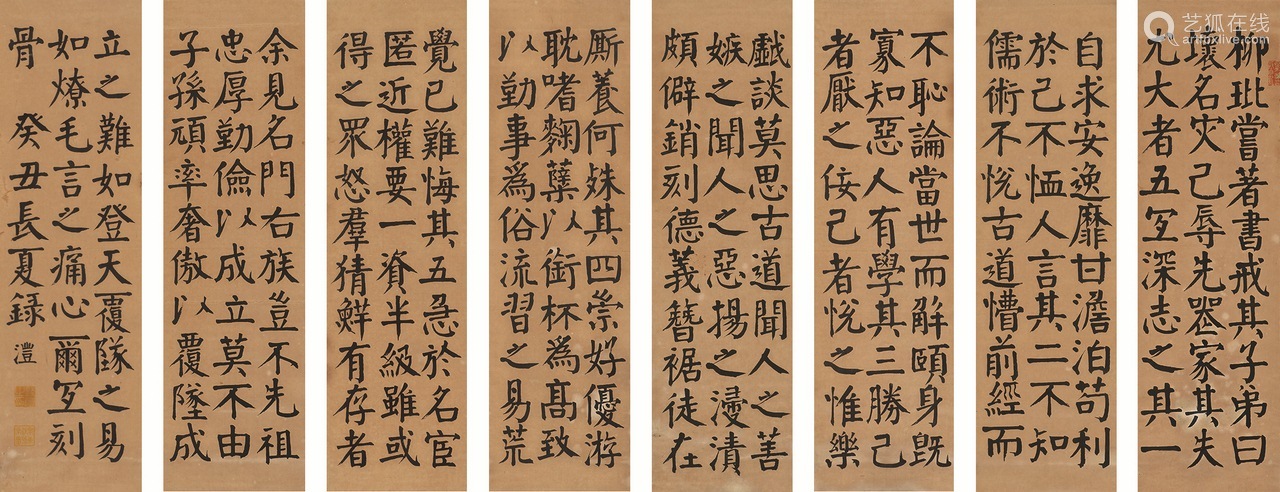 柳玭嘗著書戒其子弟曰
壞名灾己辱先喪家其失
尤大者五宜深志之其一
自求安逸靡甘澹泊苟利
於己不恤人言其二不知
儒術不悦古道懵前經而
不恥論當世而解頤身既
寡知惡人有學其三勝己
者厭之佞己者悦之惟樂
戲談莫思古道聞人之善
嫉之聞人之惡揚之浸漬
頗僻銷刻德義簪裾徒在
厮養何殊其四崇好優游
耽嗜麴糵以銜杯為高致
以勤事為俗流習之易荒
覺已難悔其五急於名宦
匿近權要一資半級雖或
得之眾怒羣猜鮮有存者
余見名門右族豈不先祖
忠厚勤儉以成立莫不由
子孫頑率奢傲以覆墜成
立之難如登天覆隊之易
如燎毛言之痛心爾宜刻
骨 癸丑長夏錄 澧
艺狐在线
artfoxlive.com